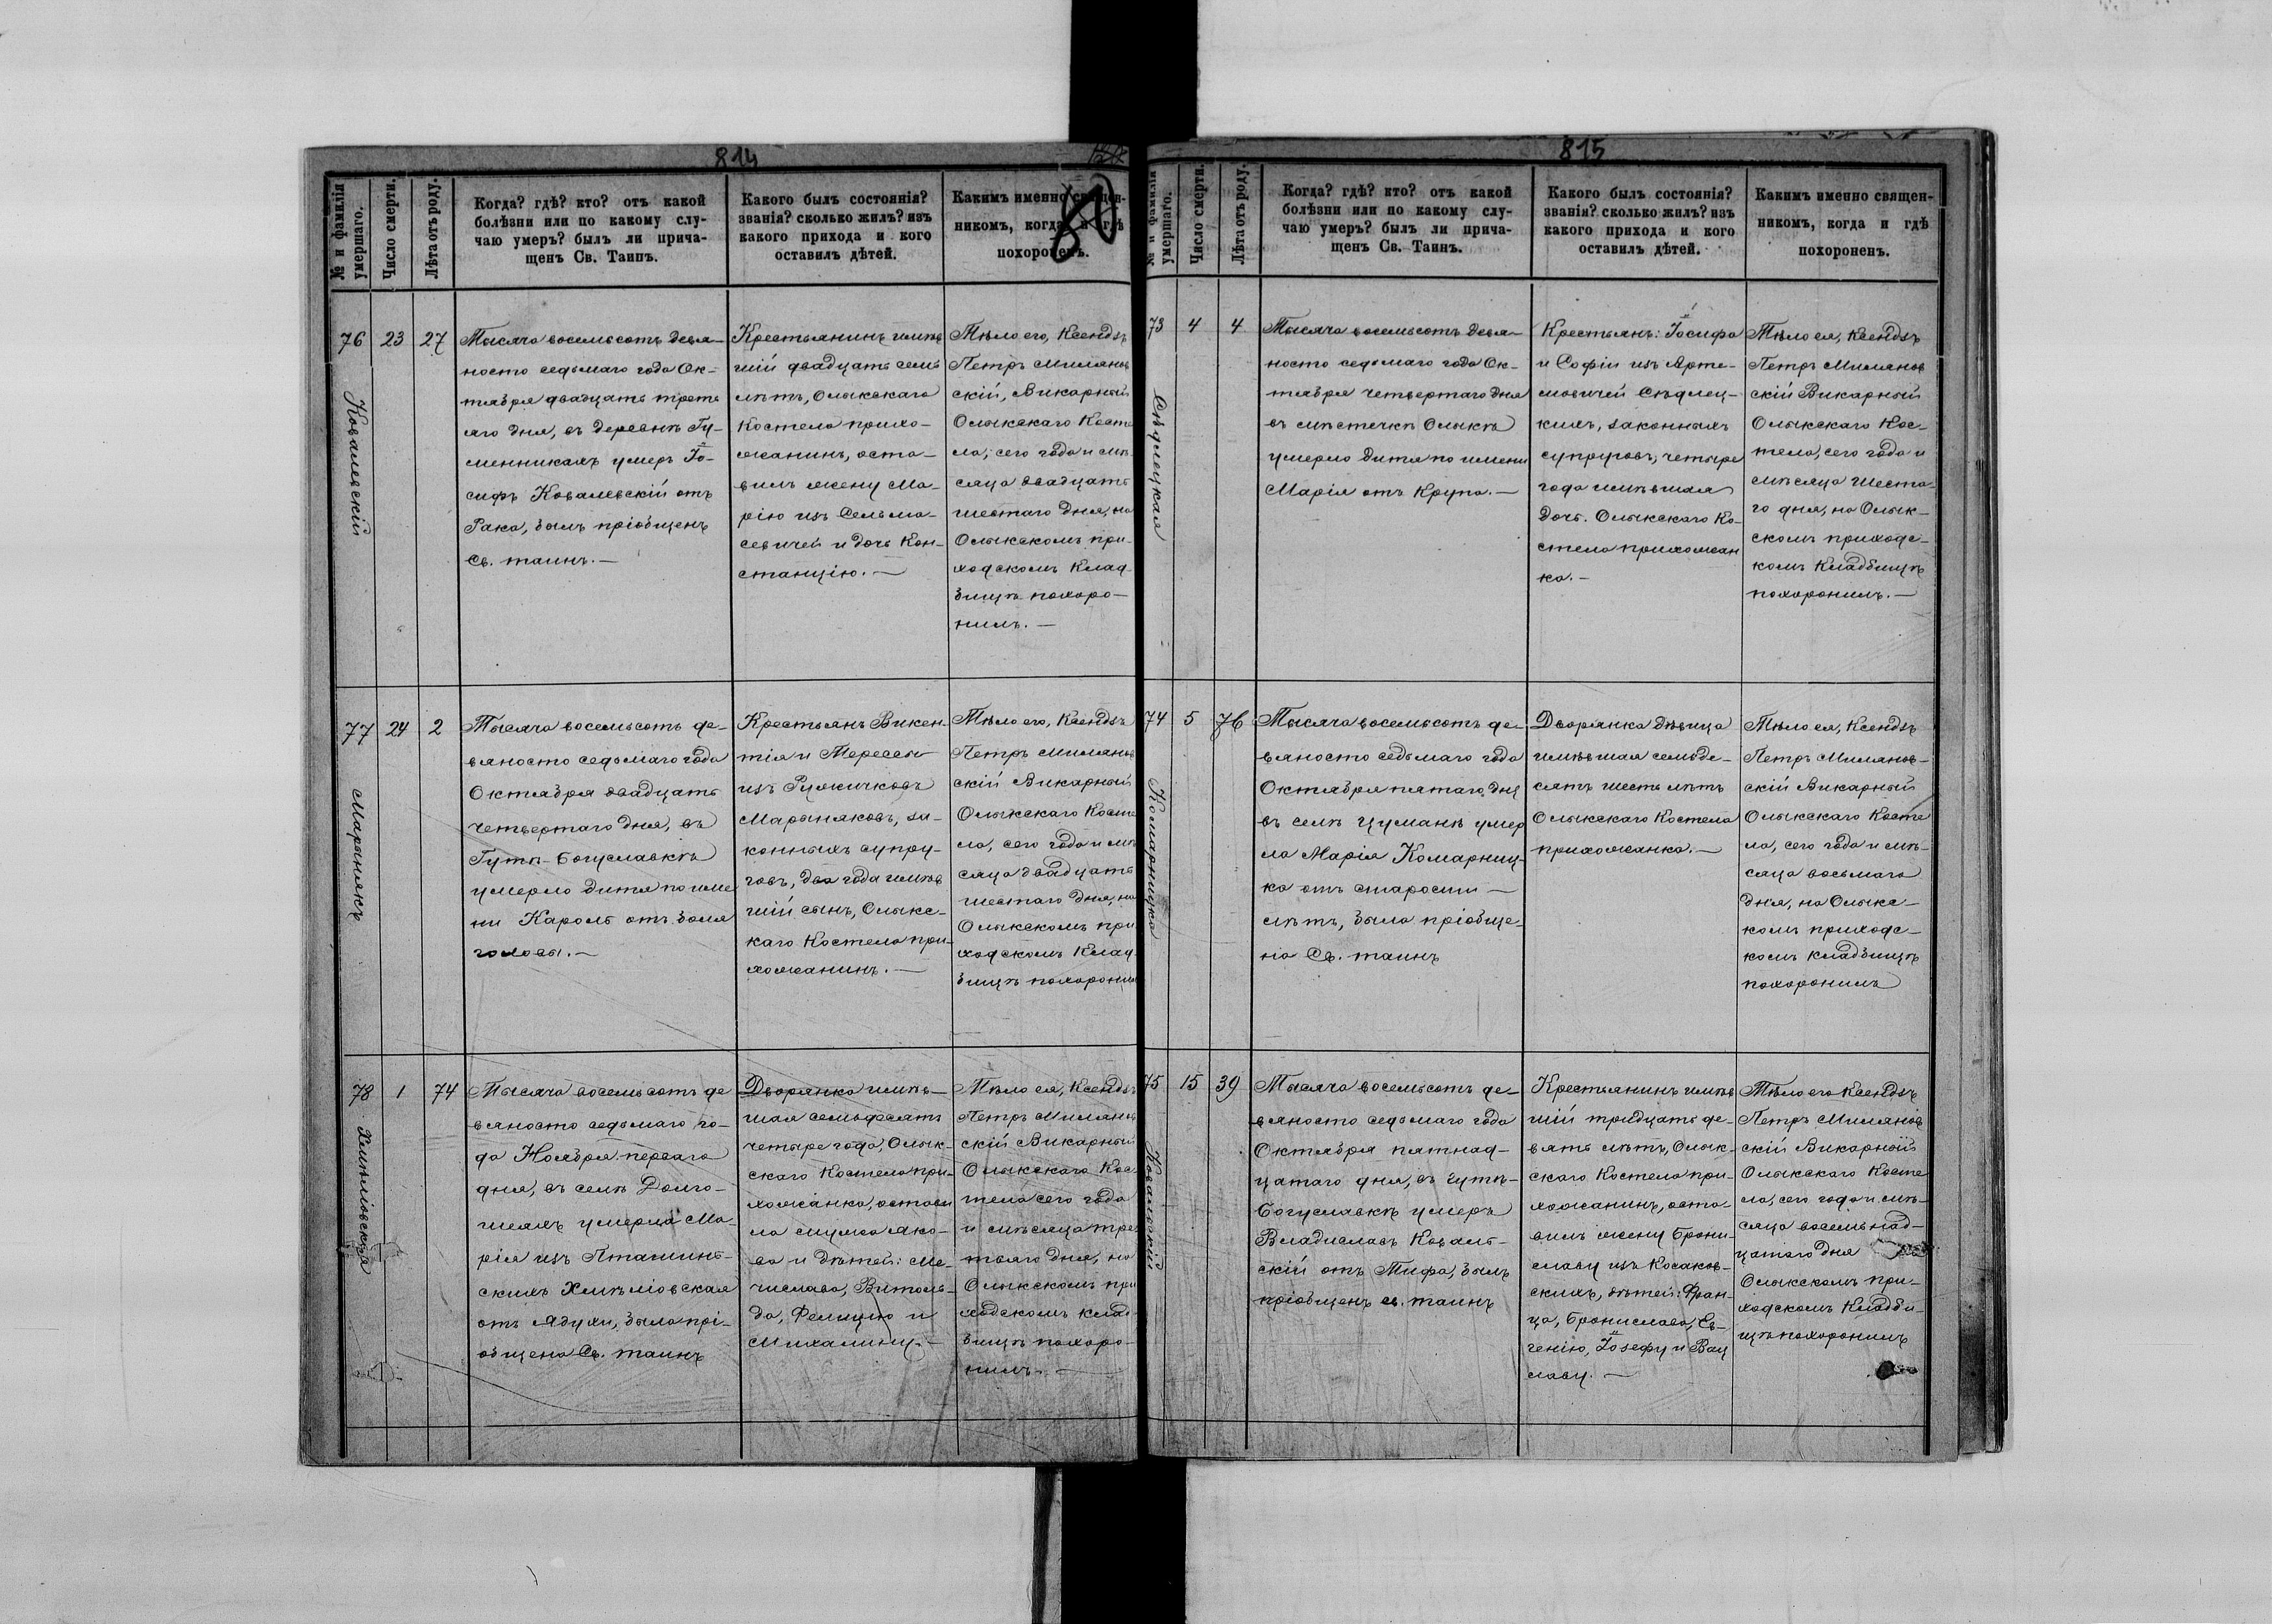 814
№ и фамилія умершаго.
Число смерти.
Лѣта отъ роду.
Когда? гдѣ? кто? отъ какой
болѣзни или по какому слу-
чаю умеръ? былъ ли прича-
щенъ Св. Таинъ.
Какого былъ состоянія?
званія? сколько жилъ? изъ
какого прихода и кого
оставилъ дѣтей.
Какимъ именно священ-
никомъ, когда и гдѣ
похороненъ.
76
Ковалевскій
23
27
Тысяча восемьсотъ девя-
носто седьмаго года Ок-
тября двадцать треть
яго дня, въ деревнѣ Гу-
менникахъ умеръ Іо-
сифъ Ковалевскій отъ
Рака, былъ пріобщенъ
Св. таинъ.—
Крестьянинъ имѣв
шій двадцать семь
лѣтъ, Олыкскаго
Костела прихо-
жанинъ, оста-
вилъ жену Ма-
рію изъ Сельма-
севичей и дочь Кон-
станцію.—
Тѣло его, Ксендзъ
Петръ Милянов
скій, Викарный
Олыкскаго Косте
ла, сего года и мѣ-
сяца двадцать
шестаго дня, на
Олыкскомъ при-
ходскомъ Клад-
бищѣ похоро-
нилъ.—
77
Марынякъ
24
2
Тысяча восемьсотъ де-
вяносто седьмаго года
Октября двадцать
четвертаго дня, въ
Гутѣ-Богуславкѣ
умерло дитя по име
ни Кароль отъ боля
головы.—
Крестьянъ Викен-
тія и Тересы
изъ Ружичковъ
Марыняковъ, за-
конныхъ супру-
говъ, два года имѣв
шій сынъ, Олыкс-
каго Костела при-
хожанинъ.—
Тѣло его, Ксендзъ
Петръ Милянов
скій Викарный
Олыкскаго Косте
ла, сего года и мѣ
сяца двадцать
шестаго дня, на
Олыкскомъ при
ходскомъ Клад-
бищѣ похоронил
78
Хмѣліовская
1
74
Тысяча восемьсотъ де
вяносто седьмаго го-
да Ноября перваго
дня, въ селѣ Долго-
шеяхъ умерла Ма-
рія изъ Пташинь-
скихъ Хмѣліовская
отъ Ядухи, была прі-
общена Св. таинъ
Дворянка имѣв-
шая семьдесятъ
четыре года, Олык-
скаго Костела при-
хожанка, остави
ла мужа Яко-
ва и дѣтей: Ме-
числава, Витоль-
да, Фелицію и
Михалину.—
Тѣло ея, Ксендзъ
Петръ Милянов
скій Викарный
Олыкскаго Кос
тела сего года
и мѣсяца тре
тьяго дня, на
Олыкскомъ при
ходскомъ клад-
бищѣ похоро-
нилъ.—
815
№ и фамилія умершаго.
Число смерти.
Лѣта отъ роду.
Когда? гдѣ? кто? отъ какой
болѣзни или по какому слу-
чаю умеръ? былъ ли прича-
щенъ Св. Таинъ.
Какого былъ состоянія?
званія? сколько жилъ? изъ
какого прихода и кого
оставилъ дѣтей.
Какимъ именно священ-
никомъ, когда и гдѣ
похороненъ.
73
Сѣдлецкая
4
4
Тысяча восемьсотъ девя-
носто седьмаго года Ок-
тября четвертаго дня
въ мѣстечкѣ Олыкѣ
умерло дитя по имени
Марія отъ Крупа.—
Крестьянъ: Іосифа
и Софіи изъ Арте-
мовичей Сѣдлец-
кихъ, законныхъ
супруговъ, четыре
года имѣвшая
дочь. Олыкскаго Ко-
стела прихожан
ка.—
Тѣло ея, Ксендзъ
Петръ Милянов
скій Викарный
Олыкскаго Кос-
тела, сего года и
мѣсяца шеста-
го дня, на Олык-
скомъ приходс-
комъ Кладбищѣ
похоронилъ.—
74
Комарницка
5
76
Тысяча восемьсотъ де-
вяносто седьмаго года
Октября пятаго дня
въ селѣ Цуманѣ умер
ла Марія Комарниц-
ка отъ старости
лѣтъ, была пріобще-
на Св. таинъ
Дворянка дѣвица
имѣвшая семьде-
сятъ шесть лѣтъ
Олыкскаго Костела
прихожанка.—
Тѣло ея, Ксендзъ
Петръ Милянов-
скій Викарный
Олыкскаго Косте
ла, сего года и мѣ-
сяца восьмаго
дня, на Олыкс-
комъ приходс-
комъ кладбищѣ
похоронилъ
75
Ковальскій
15
39
Тысяча восемьсотъ де-
вяносто седьмаго года
Октября пятнад-
цатаго дня, въ Гутѣ-
Богуславкѣ умеръ
Владиславъ Коваль-
скій отъ Тифа, былъ
пріобщенъ св. таинъ
Крестьянинъ имѣв
шій тридцать де-
вять лѣтъ, Олык-
скаго Костела при-
хожанинъ, оста-
вилъ жену Брони-
славу изъ Косаков-
скихъ, дѣтей: Фран-
ца, Бронислава, Ев-
генію, Іозефу и Вац
лаву.—
Тѣло его Ксендзъ
Петръ Милянов
скій Викарный
Олыкскаго Косте
ла, сего года и мѣ-
сяца восемьнад-
цатаго дня
Олыкскомъ при-
ходскомъ Кладби-
щѣ похоронилъ